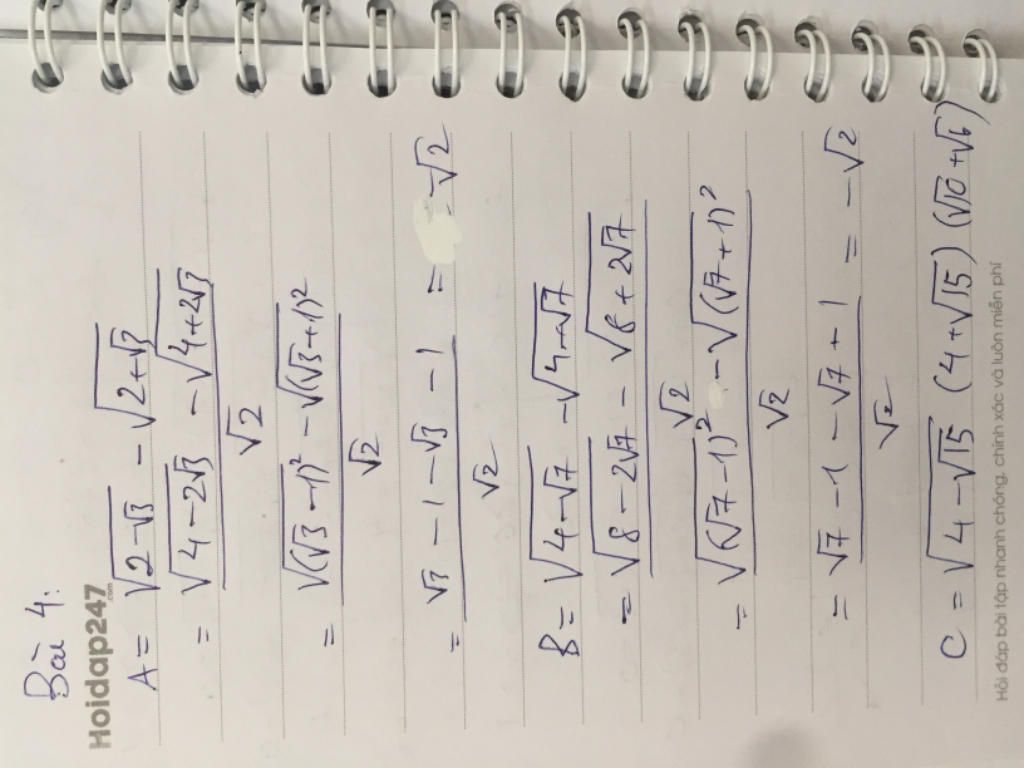 Bài 4:
Hoidap247.com
A = √(2-√3) - √(2+√3)
= (√(4-2√3) - √(4+2√3))/√2
= (√((√3-1)²) - √((√3+1)²))/√2
= (√3 - 1 - √3 - 1)/√2 = -√2
B = √(4-√7) - √(4+√7)
= (√(8-2√7) - √(8+2√7))/√2
= (√((√7-1)²) - √((√7+1)²))/√2
= (√7 - 1 - √7 + 1)/√2 = -√2
C = √(4-√15) (4+√15) (√10+√6)
Hỏi đáp bài tập nhanh chóng, chính xác và luôn miễn phí